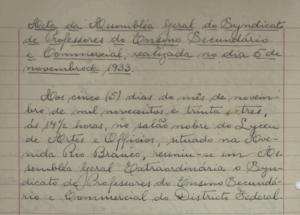 Acta da Assembléa Geral do Syndicato
de Professores do Ensino Secundário
e Commercial, realizada no dia 5 de
novembro de 1933.
Aos cinco (5) dias do mês de novem-
bro de mil novecentos e trinta e tres,
ás 14½ horas, no salão nobre do Lyceu
de Artes e Officios, situado na Ave-
nida Rio Branco, reuniu-se em As-
sembléa Geral Extraordinaria o Syn-
dicato de Professores do Ensino Secundá-
rio e Commercial do Districto Federal